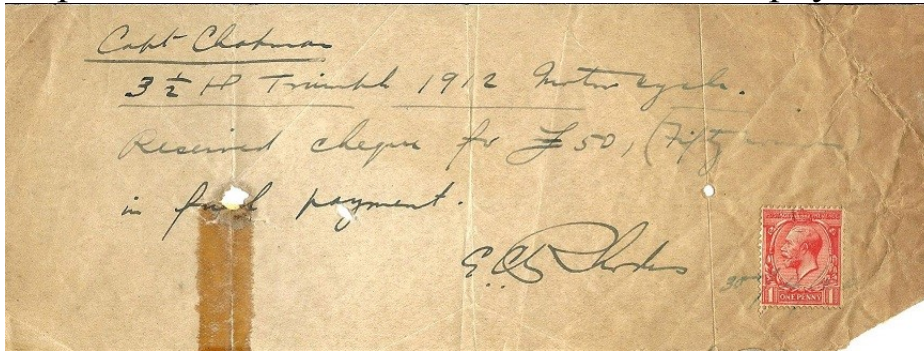 Capt Chapman
3 ½ HP Triumph 1912 Motor cycle.
Received cheque for £50, (Fifty
in full payment.
Rhodes
30
1 ONE PENNY 1